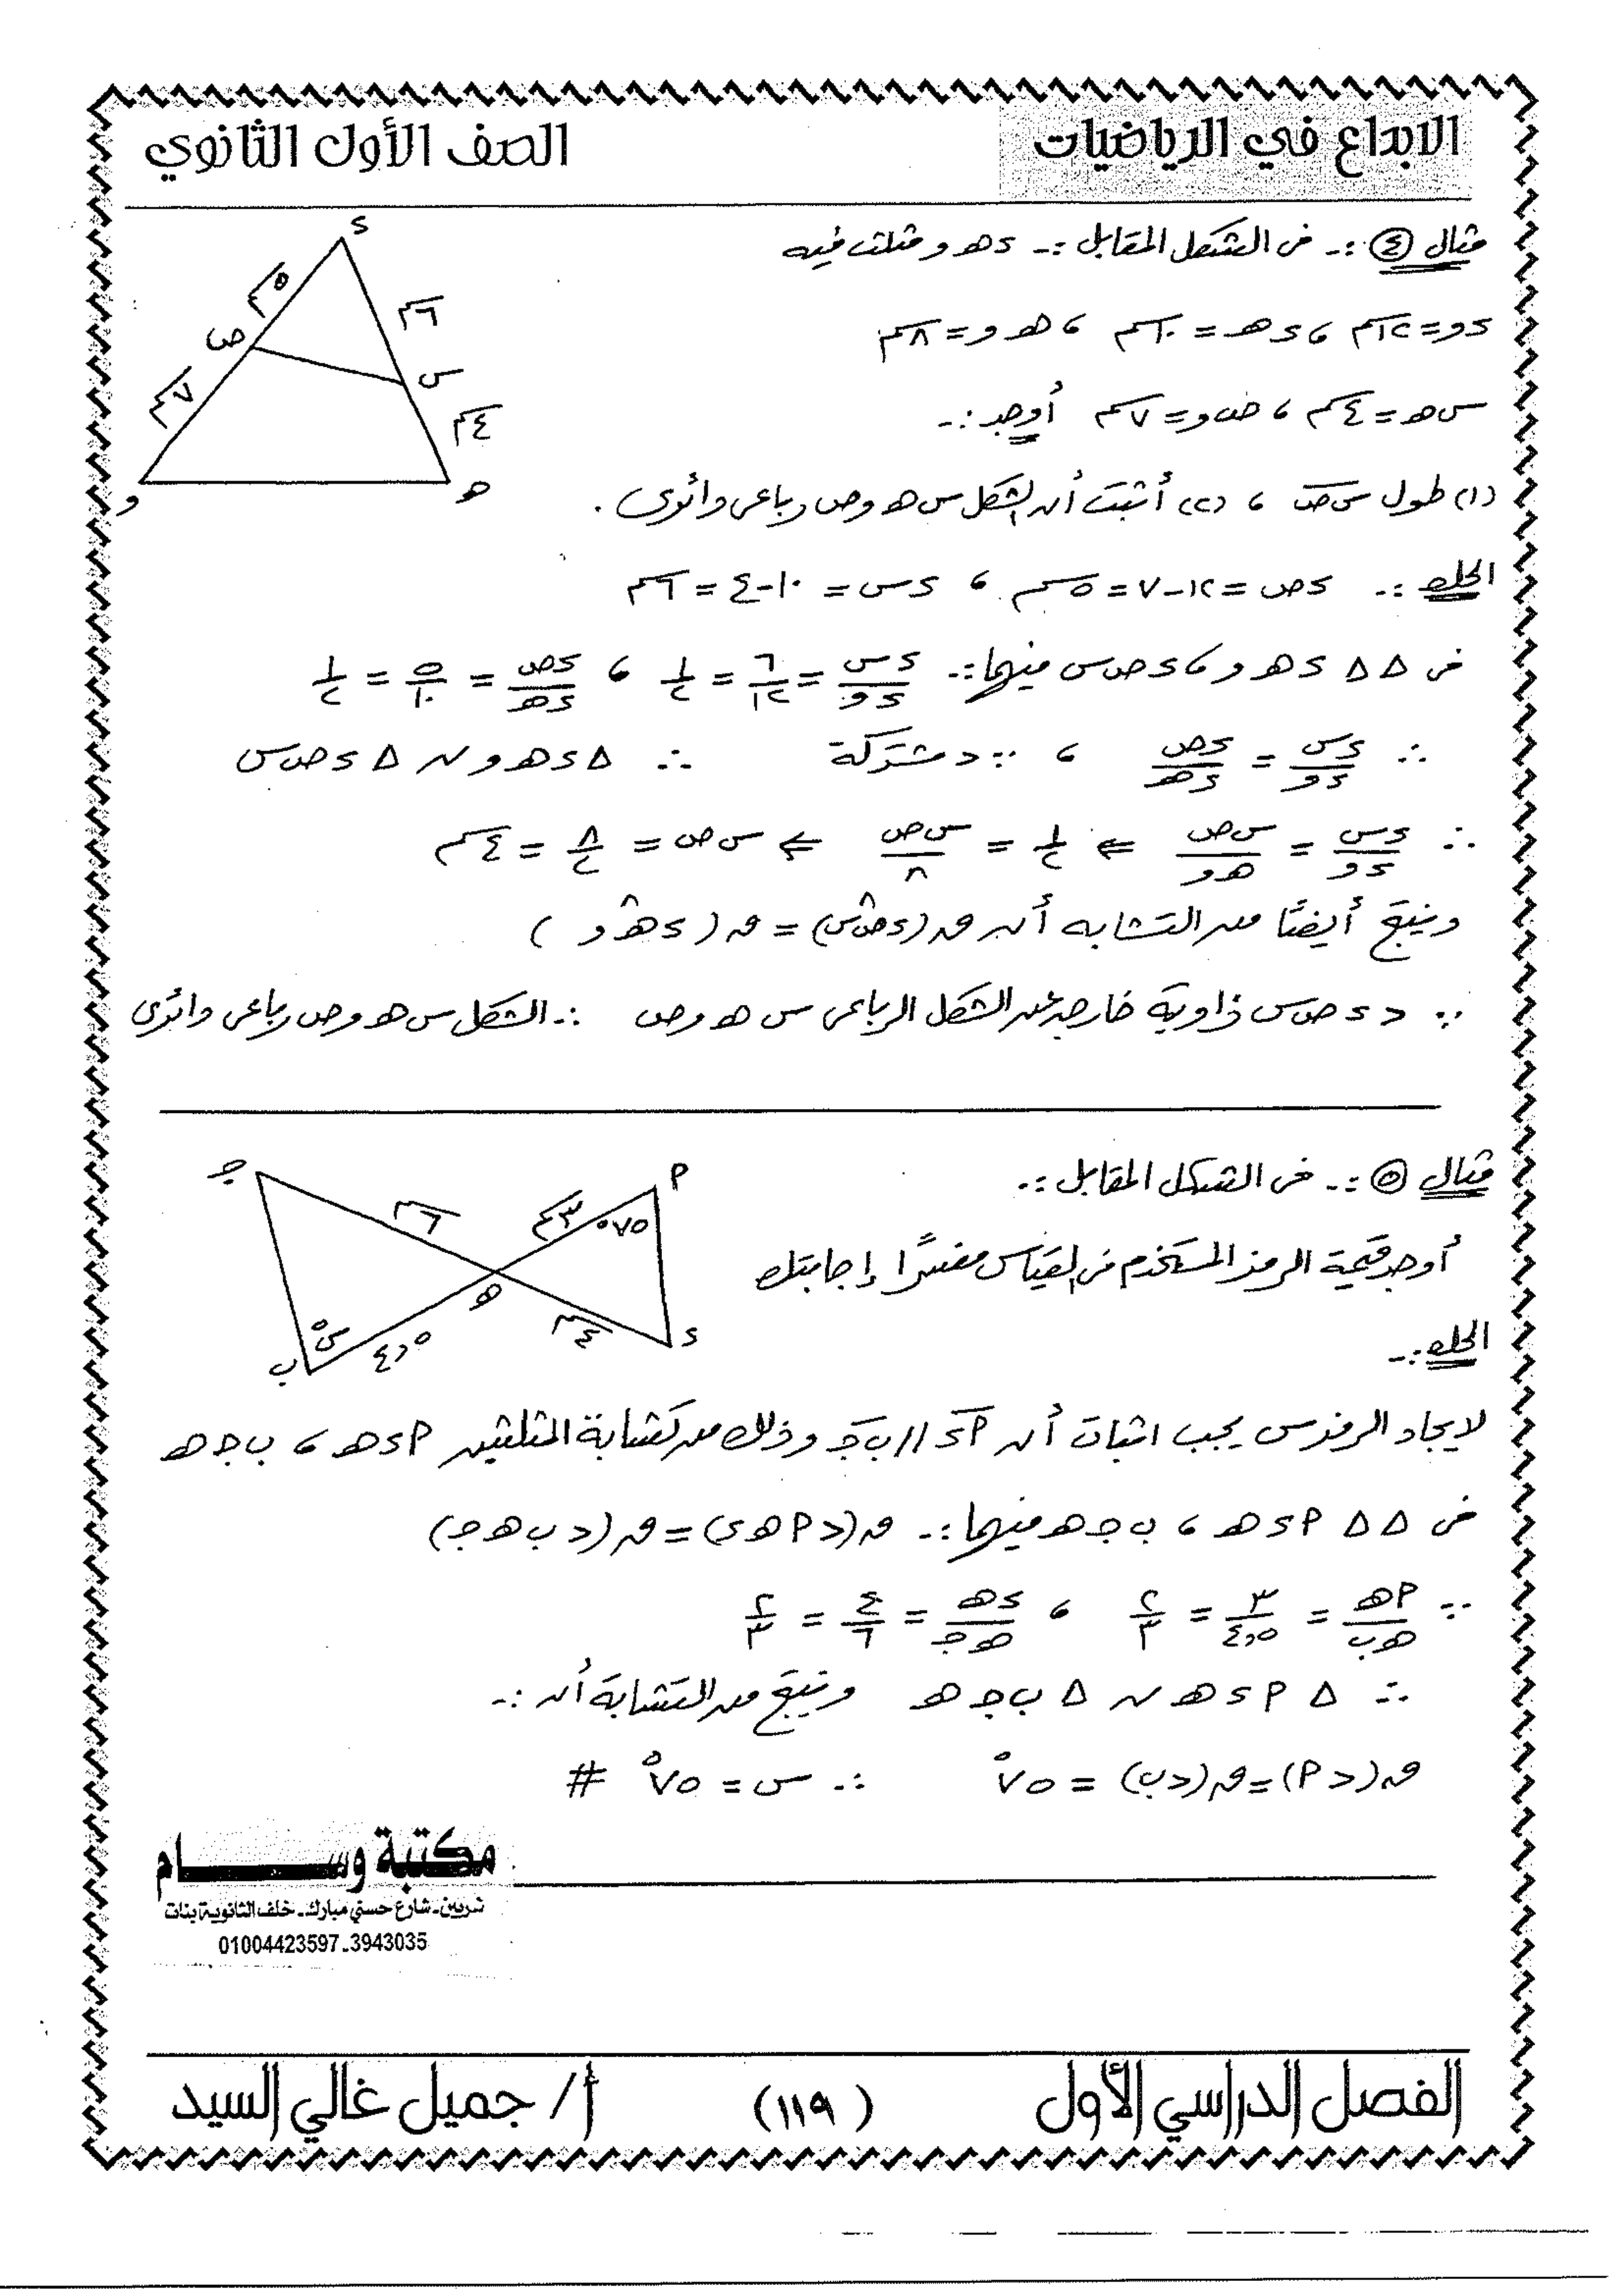 الابداع في الرياضيات
الصف الأول الثانوي
مثال (٤) :- فى الشكل المقابل :- د هـ و مثلث فيه
د و = ١٢ سم ، د هـ = ١٠ سم ، هـ و = ٨ سم
س هـ = ٤ سم ، ص و = ٧ سم أوجد :-
(١) طول س ص ، (٢) أثبت أن الشكل س هـ و ص رباعى دائرى .
د
٥ سم
٦ سم
ص
س
٧ سم
٤ سم
و
هـ
الحل :- د ص = ١٢ - ٧ = ٥ سم ، د س = ١٠ - ٤ = ٦ سم
فى Δ Δ د هـ و ، د ص س فيهما :- د س / د و = ٦ / ١٢ = ١ / ٢ ، د ص / د هـ = ٥ / ١٠ = ١ / ٢
∴ د س / د و = د ص / د هـ ، ∵ د مشتركة ∴ Δ د هـ و ~ Δ د ص س
∴ د س / د و = س ص / هـ و ⇐ ١ / ٢ = س ص / ٨ ⇐ س ص = ٨ / ٢ = ٤ سم
وينتج أيضًا من التشابه أن ق (د ص س) = ق (د هـ و)
∵ ∠ د ص س زاوية خارجه عن الشكل الرباعى س هـ و ص ∴ الشكل س هـ و ص رباعى دائرى
مثال (٥) :- فى الشكل المقابل :-
أوجد قيمة الرمز المستخدم فى القياس مفسرًا إجابتك
جـ
٦ سم
٣ سم
٧٥°
أ
هـ
س°
ب
٤٫٥
٤ سم
د
الحل :-
لايجاد الرمز س يجب اثبات أن أ د // ب جـ وذلك من تشابة المثلثين أ د هـ ، ب جـ هـ
فى Δ Δ أ د هـ ، ب جـ هـ فيهما :- ق (∠ أ هـ د) = ق (∠ ب هـ جـ)
∵ أ هـ / هـ ب = ٣ / ٤٫٥ = ٢ / ٣ ، د هـ / هـ جـ = ٤ / ٦ = ٢ / ٣
∴ Δ أ د هـ ~ Δ ب جـ هـ وينتج من التشابة أن :-
ق (∠ أ) = ق (∠ ب) = ٧٥° ∴ س = ٧٥° #
مكتبة وســـــام
شربين - شارع حسني مبارك - خلف الثانوية بنات
01004423597 - 3943035
الفصل الدراسي الأول
( ١١٩ )
أ / جميل غالي السيد